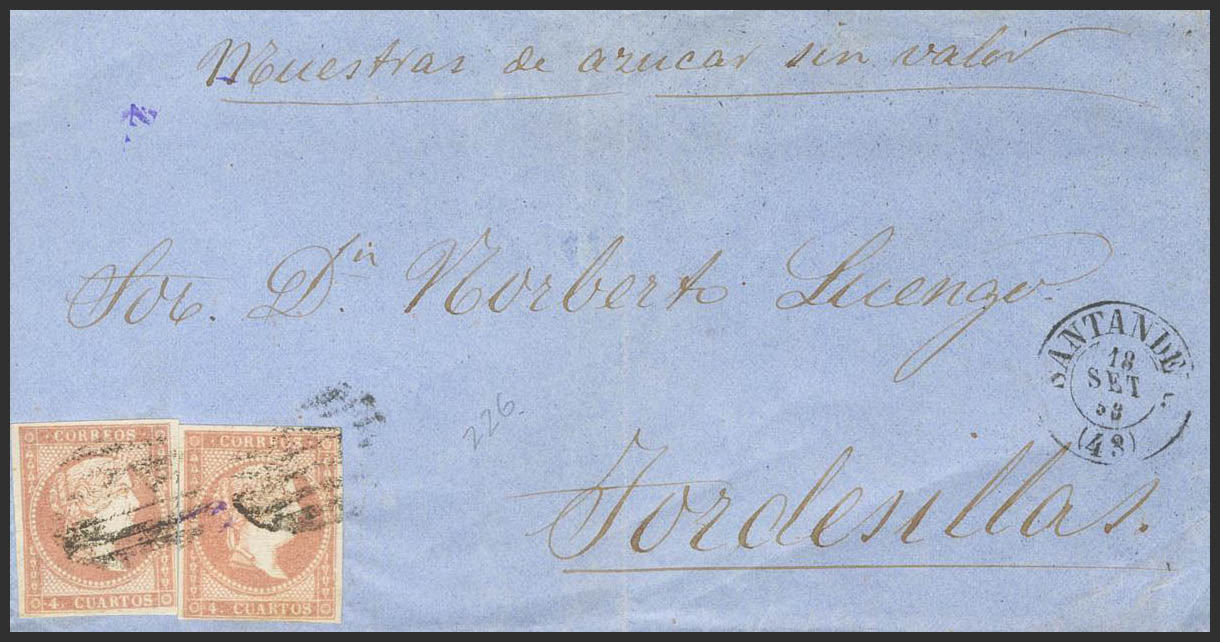 Muestras de azucar sin valor
Sor. Dn Norberto Luengo.
SANTANDER
18
SET
58
(48)
226.
Tordesillas.
CORREOS
4 CUARTOS
CORREOS
4 CUARTOS